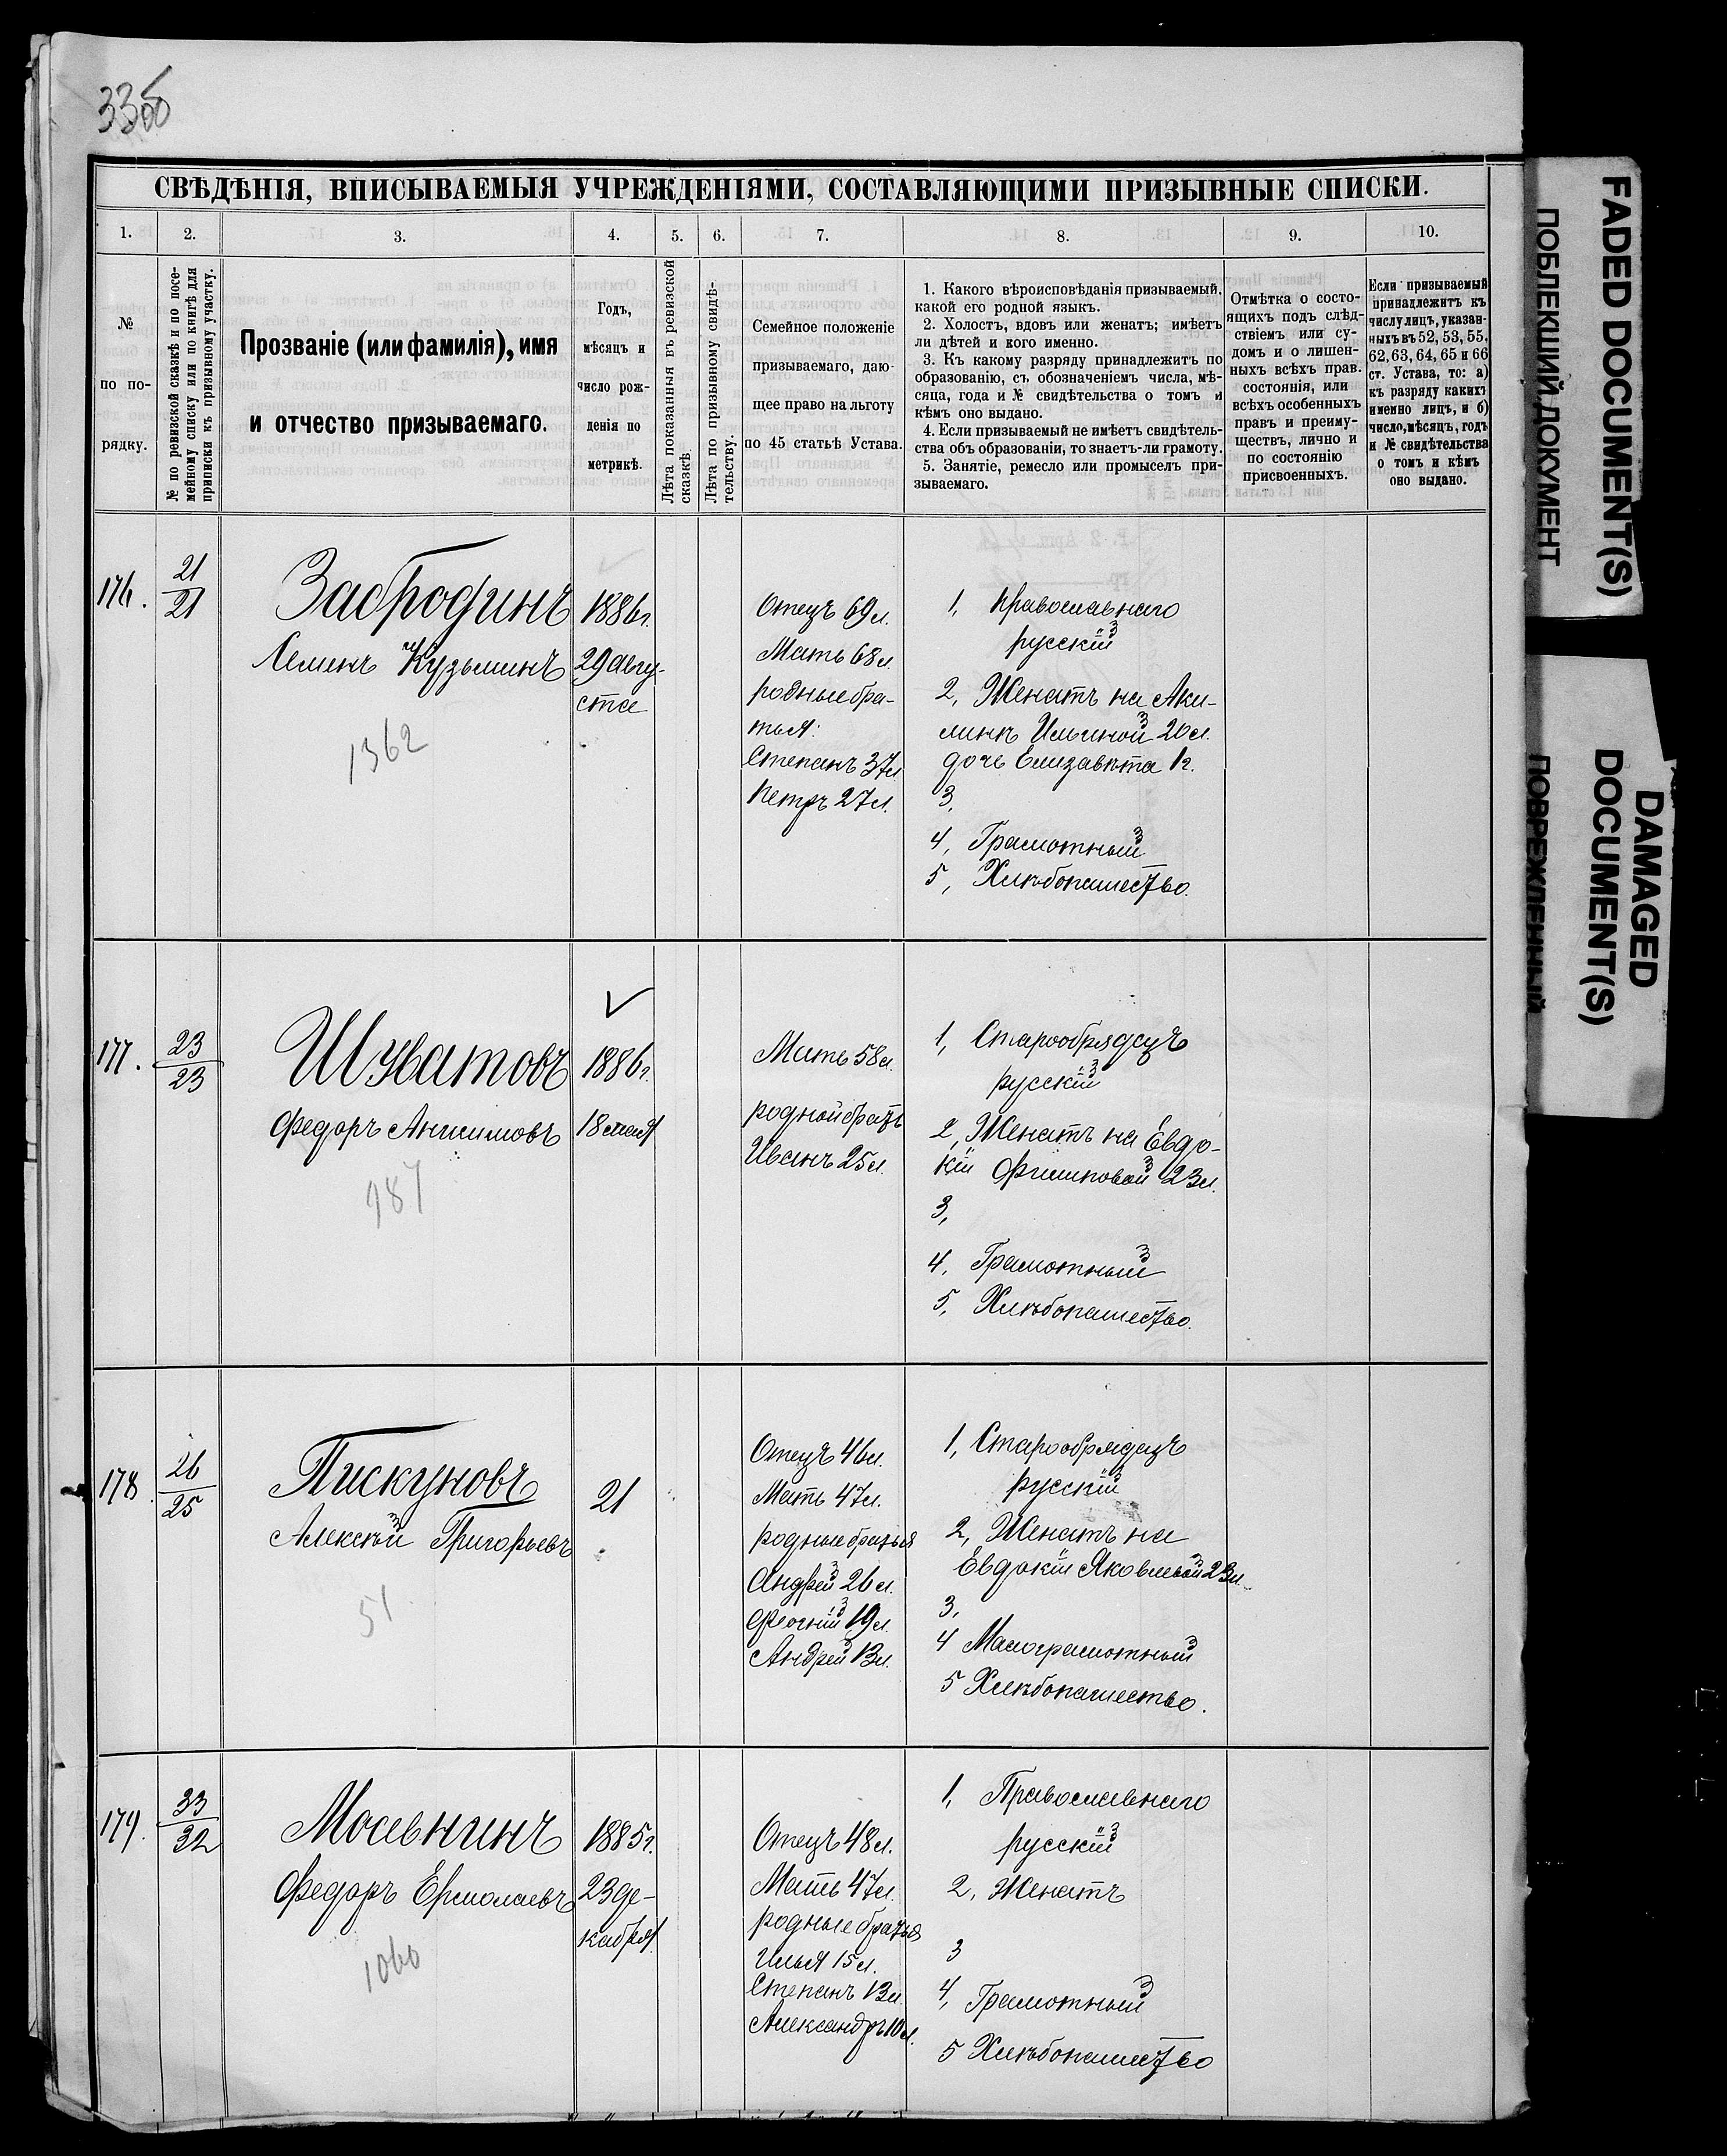 33об
СВѢДѢНІЯ, ВПИСЫВАЕМЫЯ УЧРЕЖДЕНІЯМИ, СОСТАВЛЯЮЩИМИ ПРИЗЫВНЫЕ СПИСКИ.
1. 2. 3. 4. 5. 6. 7. 8. 9. 10.
№
по по-
рядку.
№ по ревизской сказкѣ и по посе-
мейному списку или по книгѣ для
приписки къ призывному участку.
Прозваніе (или фамилія), имя
и отчество призываемаго.
Годъ,
мѣсяцъ и
число рож-
денія по
метрикѣ.
Лѣта показанныя въ ревизской
сказкѣ.
Лѣта по призывному свидѣ-
тельству.
Семейное положеніе
призываемаго, даю-
щее право на льготу
по 45 статьѣ Устава.
1. Какого вѣроисповѣданія призываемый,
какой его родной языкъ.
2. Холостъ, вдовъ или женатъ; имѣетъ
ли дѣтей и кого именно.
3. Къ какому разряду принадлежитъ по
образованію, съ обозначеніемъ числа, мѣ-
сяца, года и № свидѣтельства о томъ и
кѣмъ оно выдано.
4. Если призываемый не имѣетъ свидѣтель-
ства объ образованіи, то знаетъ-ли грамоту.
5. Занятіе, ремесло или промыселъ при-
зываемаго.
Отмѣтка о состо-
ящихъ подъ слѣд-
ствіемъ или су-
домъ и о лишен-
ныхъ всѣхъ прав.
состоянія, или
всѣхъ особенныхъ
правъ и преиму-
ществъ, лично и
по состоянію
присвоенныхъ.
Если призываемый
принадлежитъ къ
числу лицъ, указан-
ныхъ въ 52, 53, 55,
62, 63, 64, 65 и 66
ст. Устава, то: а)
къ разряду какихъ
именно лицъ, и б)
число, мѣсяцъ, годъ
и № свидѣтельства
о томъ и кѣмъ
оно выдано.
176.
21
21
Забродинъ
Кузьминъ
1362
1886г.
29 авгу-
ста
Отецъ 69л.
Мать 68л.
родные бра-
тья:
Степанъ 37л.
Петръ 27л.
1, Православнаго
русскій
2, Женатъ на Аку-
линѣ Ильиной 20л.
дочь Елизавѣта 1г.
3,
4, Грамотный
5, Хлѣбопашество.
177.
23
23
Шуватовъ
Федоръ Анисимовъ
987
1886г.
18 мая
Мать 58л.
родной братъ
Иванъ 25л.
1, Старообрядецъ
русскій
2, Женатъ на Евдо-
кіи Филиповой 23л.
3,
4, Грамотный
5, Хлѣбопашество.
178.
26
25
Пискуновъ
Алексѣй Григорьевъ
51
21
Отецъ 46л.
Мать 47л.
родные братья
Андрей 26л.
19л.
Андрей 13л.
1, Старообрядецъ
русскій
2, Женатъ на
Евдокіи Яковлевой 23л.
3,
4 Малограмотный
5 Хлѣбопашество.
179.
33
32
Федоръ Ермолаевъ
1060
1885г.
23 де-
кабря
Отецъ 48л.
Мать 47л.
родные братья
Илья 15л.
Степанъ 13л.
Александръ 10л.
1, Православнаго
русскій
2, Женатъ
3
4, Грамотный
5 Хлѣбопашество
FADED DOCUMENT(S)
ПОБЛЕКШИЙ ДОКУМЕНТ
DAMAGED
DOCUMENT(S)
ПОВРЕЖДЕННЫЙ